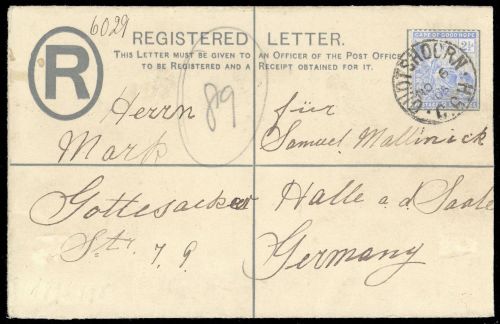 6029
REGISTERED LETTER.
THIS LETTER MUST BE GIVEN TO AN OFFICER OF THE POST OFFICE
TO BE REGISTERED AND A RECEIPT OBTAINED FOR IT.
R
CAPE OF GOOD HOPE
2½
OUDTSHOORN
NO 6
89
Herrn für
Mark Samuel Mallinick
Gottesacker Halle a.d Saale
Str. 79 Germany